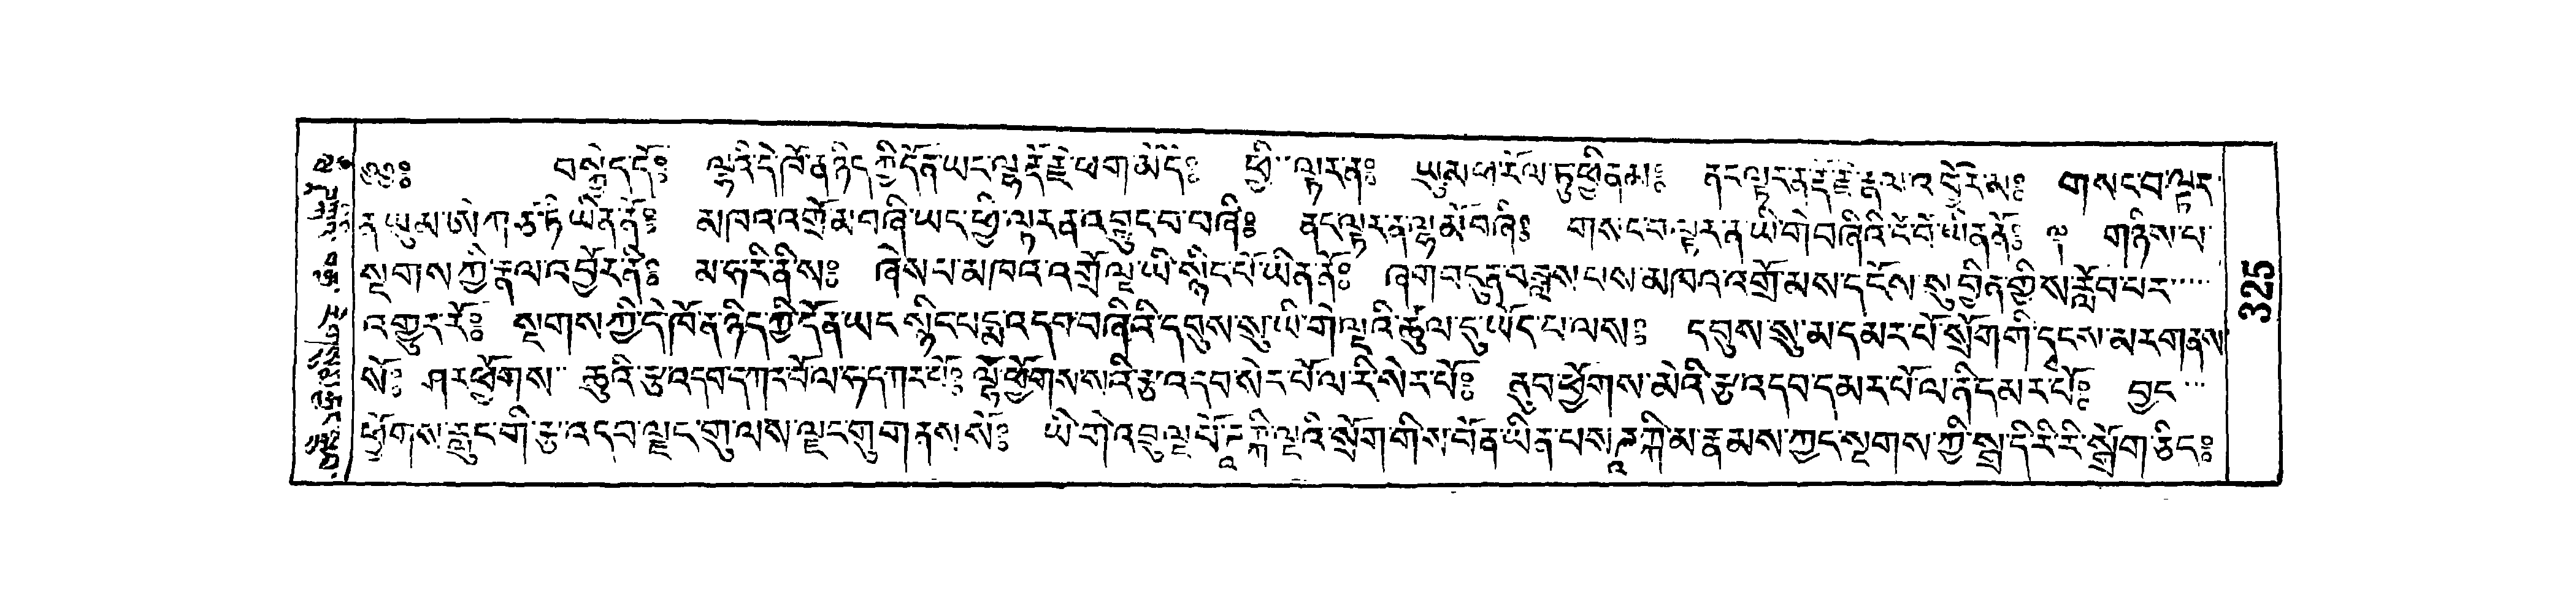 ༄༅༔ བསྐྱེད་དོ༔ ལྷའི་དེ་ཁོ་ན་ཉིད་ཀྱི་དོན་ཡང་ལྷ་རྡོ་རྗེ་ཕག་མོ་དེ༔ ཕྱི་ལྟར་ན༔ ཡུམ་ཕ་རོལ་ཏུ་ཕྱིན་མ༔ ནང་ལྟར་ན་རྡོ་རྗེ་རྣལ་འབྱོར་མ༔ གསང་བ་ལྟར་
ན་ཡུམ་ཨེ་ཀ་ཙ་ཏི་ཡིན་ནོ༔ མཁའ་འགྲོ་མ་བཞི་ཡང་ཕྱི་ལྟར་ན་འབྱུང་བ་བཞི༔ ནང་ལྟར་ན་ལྷ་མོ་བཞི༔ གསང་བ་ལྟར་ན་ཡི་གེ་བཞིའི་ངོ་བོ་ཡིན་ནོ༔ གཉིས་པ་
སྔགས་ཀྱི་རྣལ་འབྱོར་ནི༔ མ་ཧ་རི་ནི་ས༔ ཞེས་པ་མཁའ་འགྲོ་ལྔ་ཡི་སྙིང་པོ་ཡིན་ནོ༔ ཞག་བདུན་བཟླས་པས་མཁའ་འགྲོ་མས་དངོས་སུ་བྱིན་གྱིས་རློབ་པར་
འགྱུར་རོ༔ སྔགས་ཀྱི་དེ་ཁོ་ན་ཉིད་ཀྱི་དོན་ཡང་སྙིང་པདྨ་འདབ་བཞིའི་དབུས་སུ་ཡི་གེ་ལྔའི་ཚུལ་དུ་ཡོད་པ་ལས༔ དབུས་སུ་མ་དམར་པོ་སྲོག་གི་དྭངས་མར་གནས་
སོ༔ ཤར་ཕྱོགས་ཆུའི་རྩ་འདབ་དཀར་པོ་ལ་ཧ་དཀར་པོ༔ ལྷོ་ཕྱོགས་སའི་རྩ་འདབ་སེར་པོ་ལ་རི་སེར་པོ༔ ནུབ་ཕྱོགས་མེའི་རྩ་འདབ་དམར་པོ་ལ་ནི་དམར་པོ༔ བྱང་
ཕྱོགས་རླུང་གི་རྩ་འདབ་ལྗང་གུ་ལ་ས་ལྗང་གུ་གནས་སོ༔ ཡི་གེ་འབྲུ་ལྔ་པོ་ཌཱ་ཀི་ལྔའི་སྲོག་གིས་བོན་ཡིན་པས་ཌཱ་ཀི་མ་རྣམས་ཀྱང་སྔགས་ཀྱི་སྒྲ་དི་རི་རི་སྒྲོག་ཅིང༔